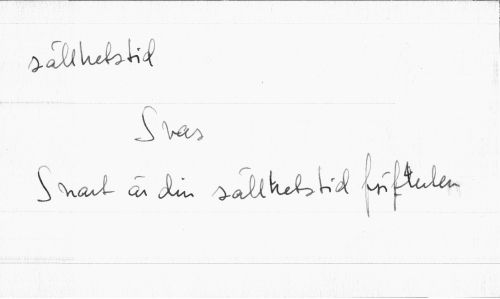 sällhetstid
Svas
Snart är din sällhetstid